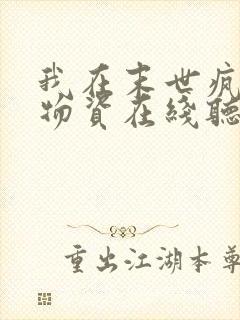 我在末世疯
物资在线听
重出江湖本尊